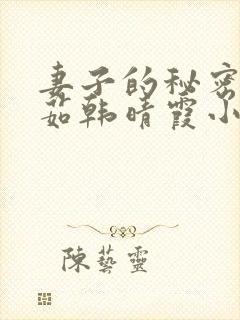 妻子的秘密
茹韩晴霞小
陳藝靈